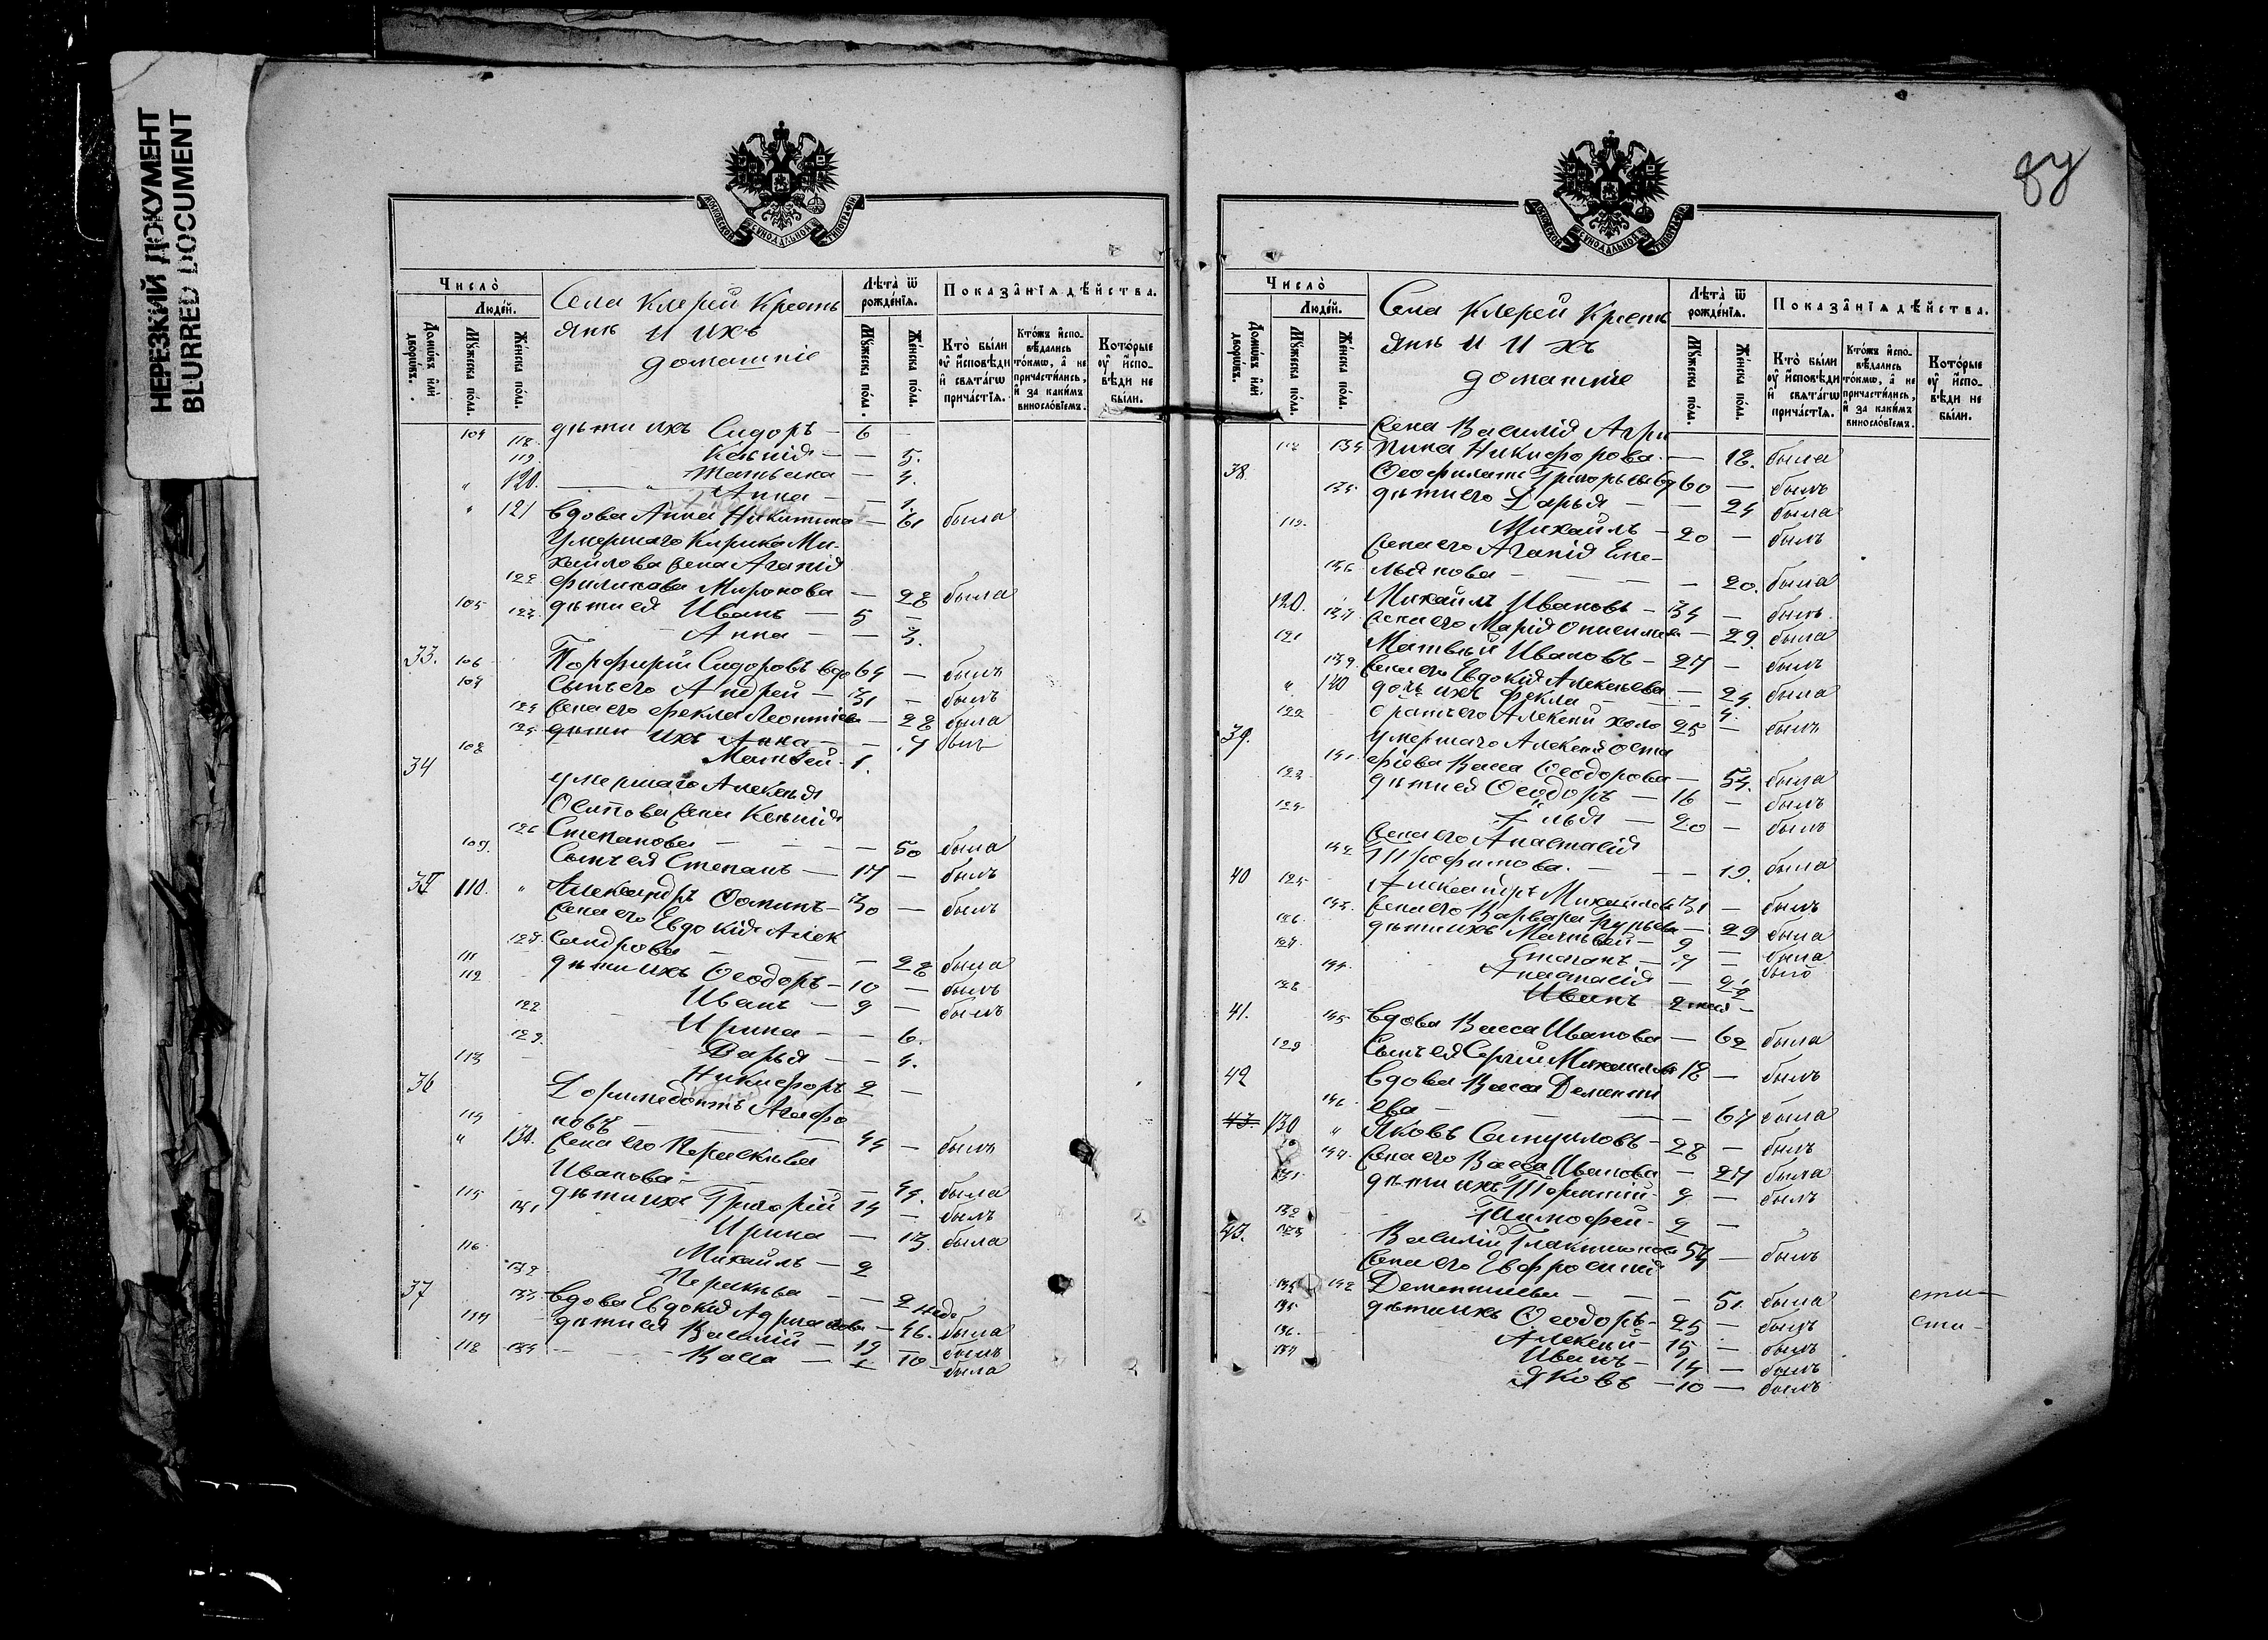 НЕРЕЗКИЙ ДОКУМЕНТ
BLURRED DOCUMENT
МОСКОВСКОЙ СѴНОДАЛЬНОЙ ТИПОГРАФІИ
Число̀
Людей.
Домѡвъ или дворѡвъ.
Мꙋжеска пола.
Женска пола.
Села Клерей Кресть
янъ и ихъ
домашніе
Лѣта ѿ рожденїѧ.
Мꙋжеска пола.
Женска пола.
Показанїѧ дѣйства.
Кто были оу исповѣди и свѧтагѡ причастїѧ.
Ктожъ исповѣдались токмѡ, а не причастились, и за какимъ винословїемъ.
Которые оу исповѣди не были.
104 дѣти ихъ Сидоръ — 6 —
118. Ксенія — — 5.
119. Татьяна — — 3.
" 120. Анна — — 1.
" 121 вдова Анна Никитина — 61 была
Умершаго Кирика Ми-
хайлова жена Агапія
122 Филипова Миронова — 28 была
105 дѣти ея Иванъ — 5 —
123. Анна — — 3.
33. 106 Порфирій Сидоровъ вдо 64 — былъ
107 Сынъ его Андрей — 31 — былъ
124 жена его Фекла Леонтіева — 28 была
125 дѣти ихъ Анна — — 7 была
108 Матвей — 1.
34 умершаго Алексѣя
Осипова жена Ксенія
126 Степанова — — — 50 была
109. Сынъ ея Степанъ — 17 — былъ
35 110. " Александръ Ѳоминъ — 30 — былъ
жена его Евдокія Алек
127. сандрова — — 28 была
111 дѣти ихъ Ѳеодоръ — 10 — былъ
112 Иванъ — 9 — былъ
128 Ирина — — 6.
129. Дарья — — 4.
113 Никифоръ 2 —
36 Доримедонтъ Агафо
114 новъ — — 44 — былъ
" 130. жена его Параскѣва
Иванова — — 44. была
115 дѣти ихъ Григорій 14 — былъ
131 Ирина — 13 была
116 Михаилъ — 2
132 Параскѣва — — 2 неде
37 133 вдова Евдокія Адріанова — 46. была
117 дѣти ея Василій — 19 — былъ
118 134 Васса — — 10 — была
87
Число̀
Людей.
Домѡвъ или дворѡвъ.
Мꙋжеска пола.
Женска пола.
Села Клерей Кресть
янъ и ихъ
домашніе
Лѣта ѿ рожденїѧ.
Мꙋжеска пола.
Женска пола.
Показанїѧ дѣйства.
Кто были оу исповѣди и свѧтагѡ причастїѧ.
Ктожъ исповѣдались токмѡ, а не причастились, и за какимъ винословїемъ.
Которые оу исповѣди не были.
жена Василія Агри
134 пина Никифорова — — 18. была
38 Ѳеофилактъ Григорьевъ 60 — былъ
135 дѣти его Дарья — — 24 была
119. Михаилъ — 20 — былъ
жена его Агапія Еме-
136 льянова — — — 20. была
120. Михаилъ Ивановъ — 34 — былъ
137 жена его Марія — 29. была
121 Матвѣй Ивановъ — 27 — былъ
139. жена его Евдокія Алексѣева — 24 была
" 140 дочь ихъ Фекла — — 4.
122 братъ его Алексѣй холо 25 — былъ
39. Умершаго Алексѣя
141 Васса Ѳеодорова — 54. была
123 дѣти ея Ѳеодоръ — 16 — былъ
124 Илья — 20 — былъ
жена его Анастасія
142 Трофимова — — — 19. была
40 125 Александръ Михайловъ 31 — былъ
143 жена его Варвара — 29 была
126. дѣти ихъ Матвѣй — 9 — была
127. Степанъ — 7 — было
144 Анастасія — 2½
128 Иванъ 2 нед —
41. 145 вдова Васса Иванова — 62 была
129 Сынъ ея Сергій Михайловъ 18 — былъ
42 вдова Васса Дементі
146 ева — — — 67 была
43. 130 " Яковъ Самуиловъ — 28 — былъ
147 жена его Васса Иванова — 27 была
131 дѣти ихъ — 9 — былъ
132 Тимофей — 2 —
43. 133 Василій 57 — былъ
жена его Евфросинія
148 Дементіева — — 51. была
дѣти ихъ Ѳеодоръ — 25 — былъ
135 Алексѣй — 15 — былъ
136. Иванъ — 14 — былъ
137 Яковъ — 10 — былъ